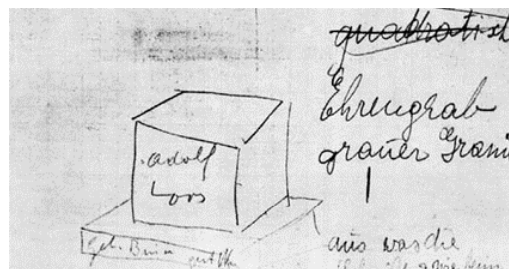 quadratisch
Ehrengrab
grauer Grani
adolf
Loos
geb. Brünn
aus was die